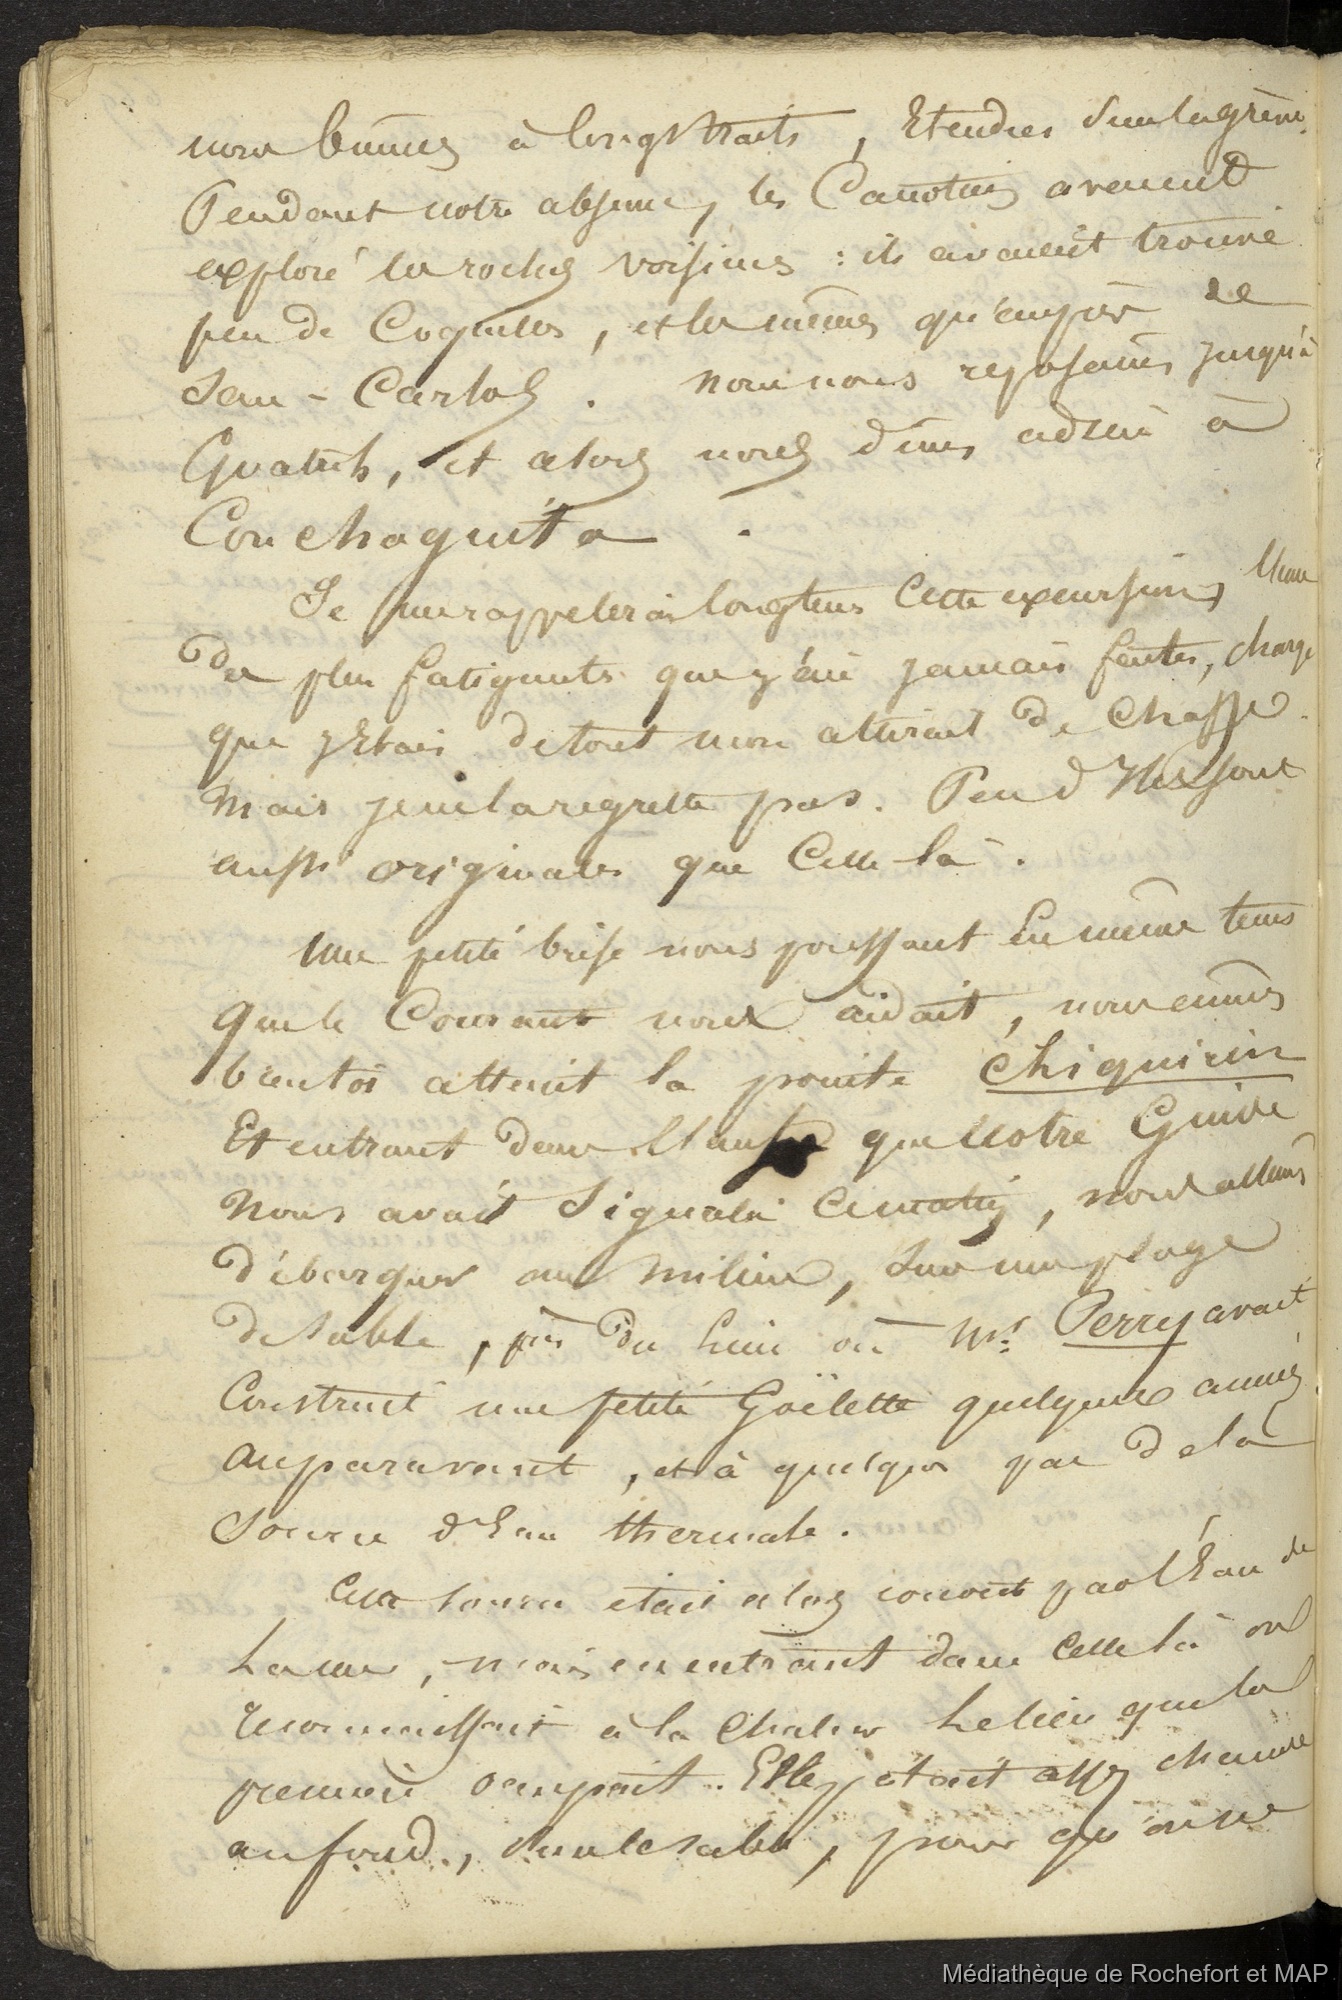 nous bûmes à longs traits, Etendus sur la grève.
Pendant notre absence, les Canotiers avaient
exploré les roches voisines : ils avaient trouvé
peu de Coquilles, et les mêmes qu'en parv de
San - Carlos. nous nous reposâmes jusqu'à
Quatre h, et alors nous dîmes adieu à
Conchaguita.
Je me rappelerai longtems Cette excursion, l'une
des plus fatigantes que j'aie jamais faites, chargé
que j'Etais de tout mon attirail de Chasse.
Mais je ne la regrette pas. Peu d'Iles sont
aussi originales que Celle là.
une petite brise nous poussant En même tems
que le Courant nous aidait, nous eûmes
bientôt atteint la pointe Chiquirin
Et entrant dans l'anse que notre Guide
nous avait Signalée le matin, nous allâmes
débarquer au milieu, Sur une plage
de Sable, près du lieu où Mr. Perry avait
Construit une petite Goëlette quelques années
auparavant, et à quelques pas de la
Source d'Eau thermale.
Cette source était alors couverte par l'Eau de
La mer, mais en entrant dans Celle là on
reconnaissait à la Chaleur Le lieu que la
première occupait. Elle y était assez chaude
au fond, Sur le sable, pour qu'on ne
Médiathèque de Rochefort et MAP